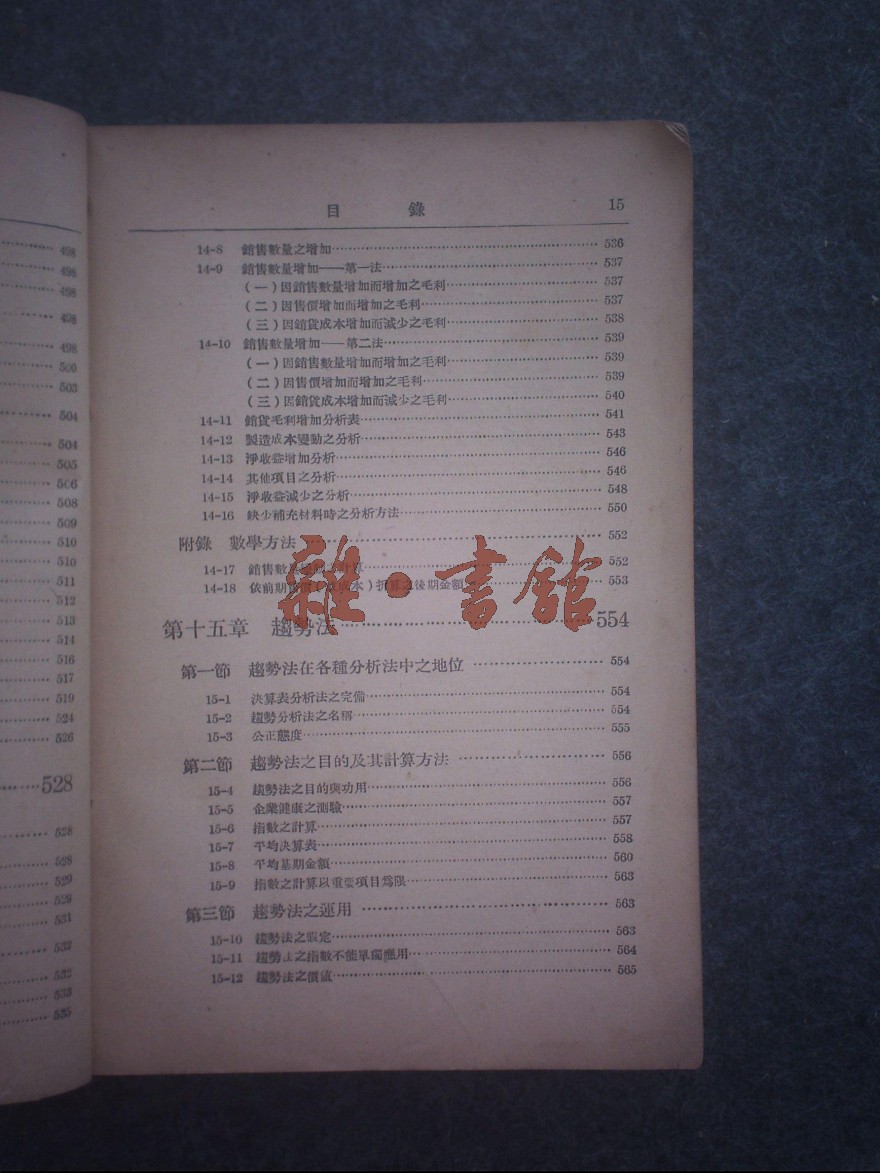 498
498
498
498
498
500
503
504
504
505
506
508
509
510
510
511
512
513
514
516
517
519
524
526
528
528
528
529
529
531
532
532
533
535
目 錄 15
14-8 銷售數量之增加 536
14-9 銷售數量增加——第一法 537
(一)因銷售數量增加而增加之毛利 537
(二)因售價增加而增加之毛利 537
(三)因銷貨成本增加而減少之毛利 538
14-10 銷售數量增加——第二法 539
(一)因銷售數量增加而增加之毛利 539
(二)因售價增加而增加之毛利 539
(三)因銷貨成本增加而減少之毛利 540
14-11 銷貨毛利增加分析表 541
14-12 製造成本變動之分析 543
14-13 淨收益增加分析 546
14-14 其他項目之分析 546
14-15 淨收益減少之分析 548
14-16 缺少補充材料時之分析方法 550
附錄 數學方法 552
14-17 銷售數量計算 552
14-18 依前期成本)折算之後期金額 553
雜·書館
第十五章 趨勢法 554
第一節 趨勢法在各種分析法中之地位 554
15-1 決算表分析法之完備 554
15-2 趨勢分析法之名稱 554
15-3 公正態度 555
第二節 趨勢法之目的及其計算方法 556
15-4 趨勢法之目的與功用 556
15-5 企業健康之測驗 557
15-6 指數之計算 557
15-7 平均決算表 558
15-8 平均基期金額 560
15-9 指數之計算以重要項目為限 563
第三節 趨勢法之運用 563
15-10 趨勢法之假定 563
15-11 趨勢法之指數不能單獨應用 564
15-12 趨勢法之價值 565